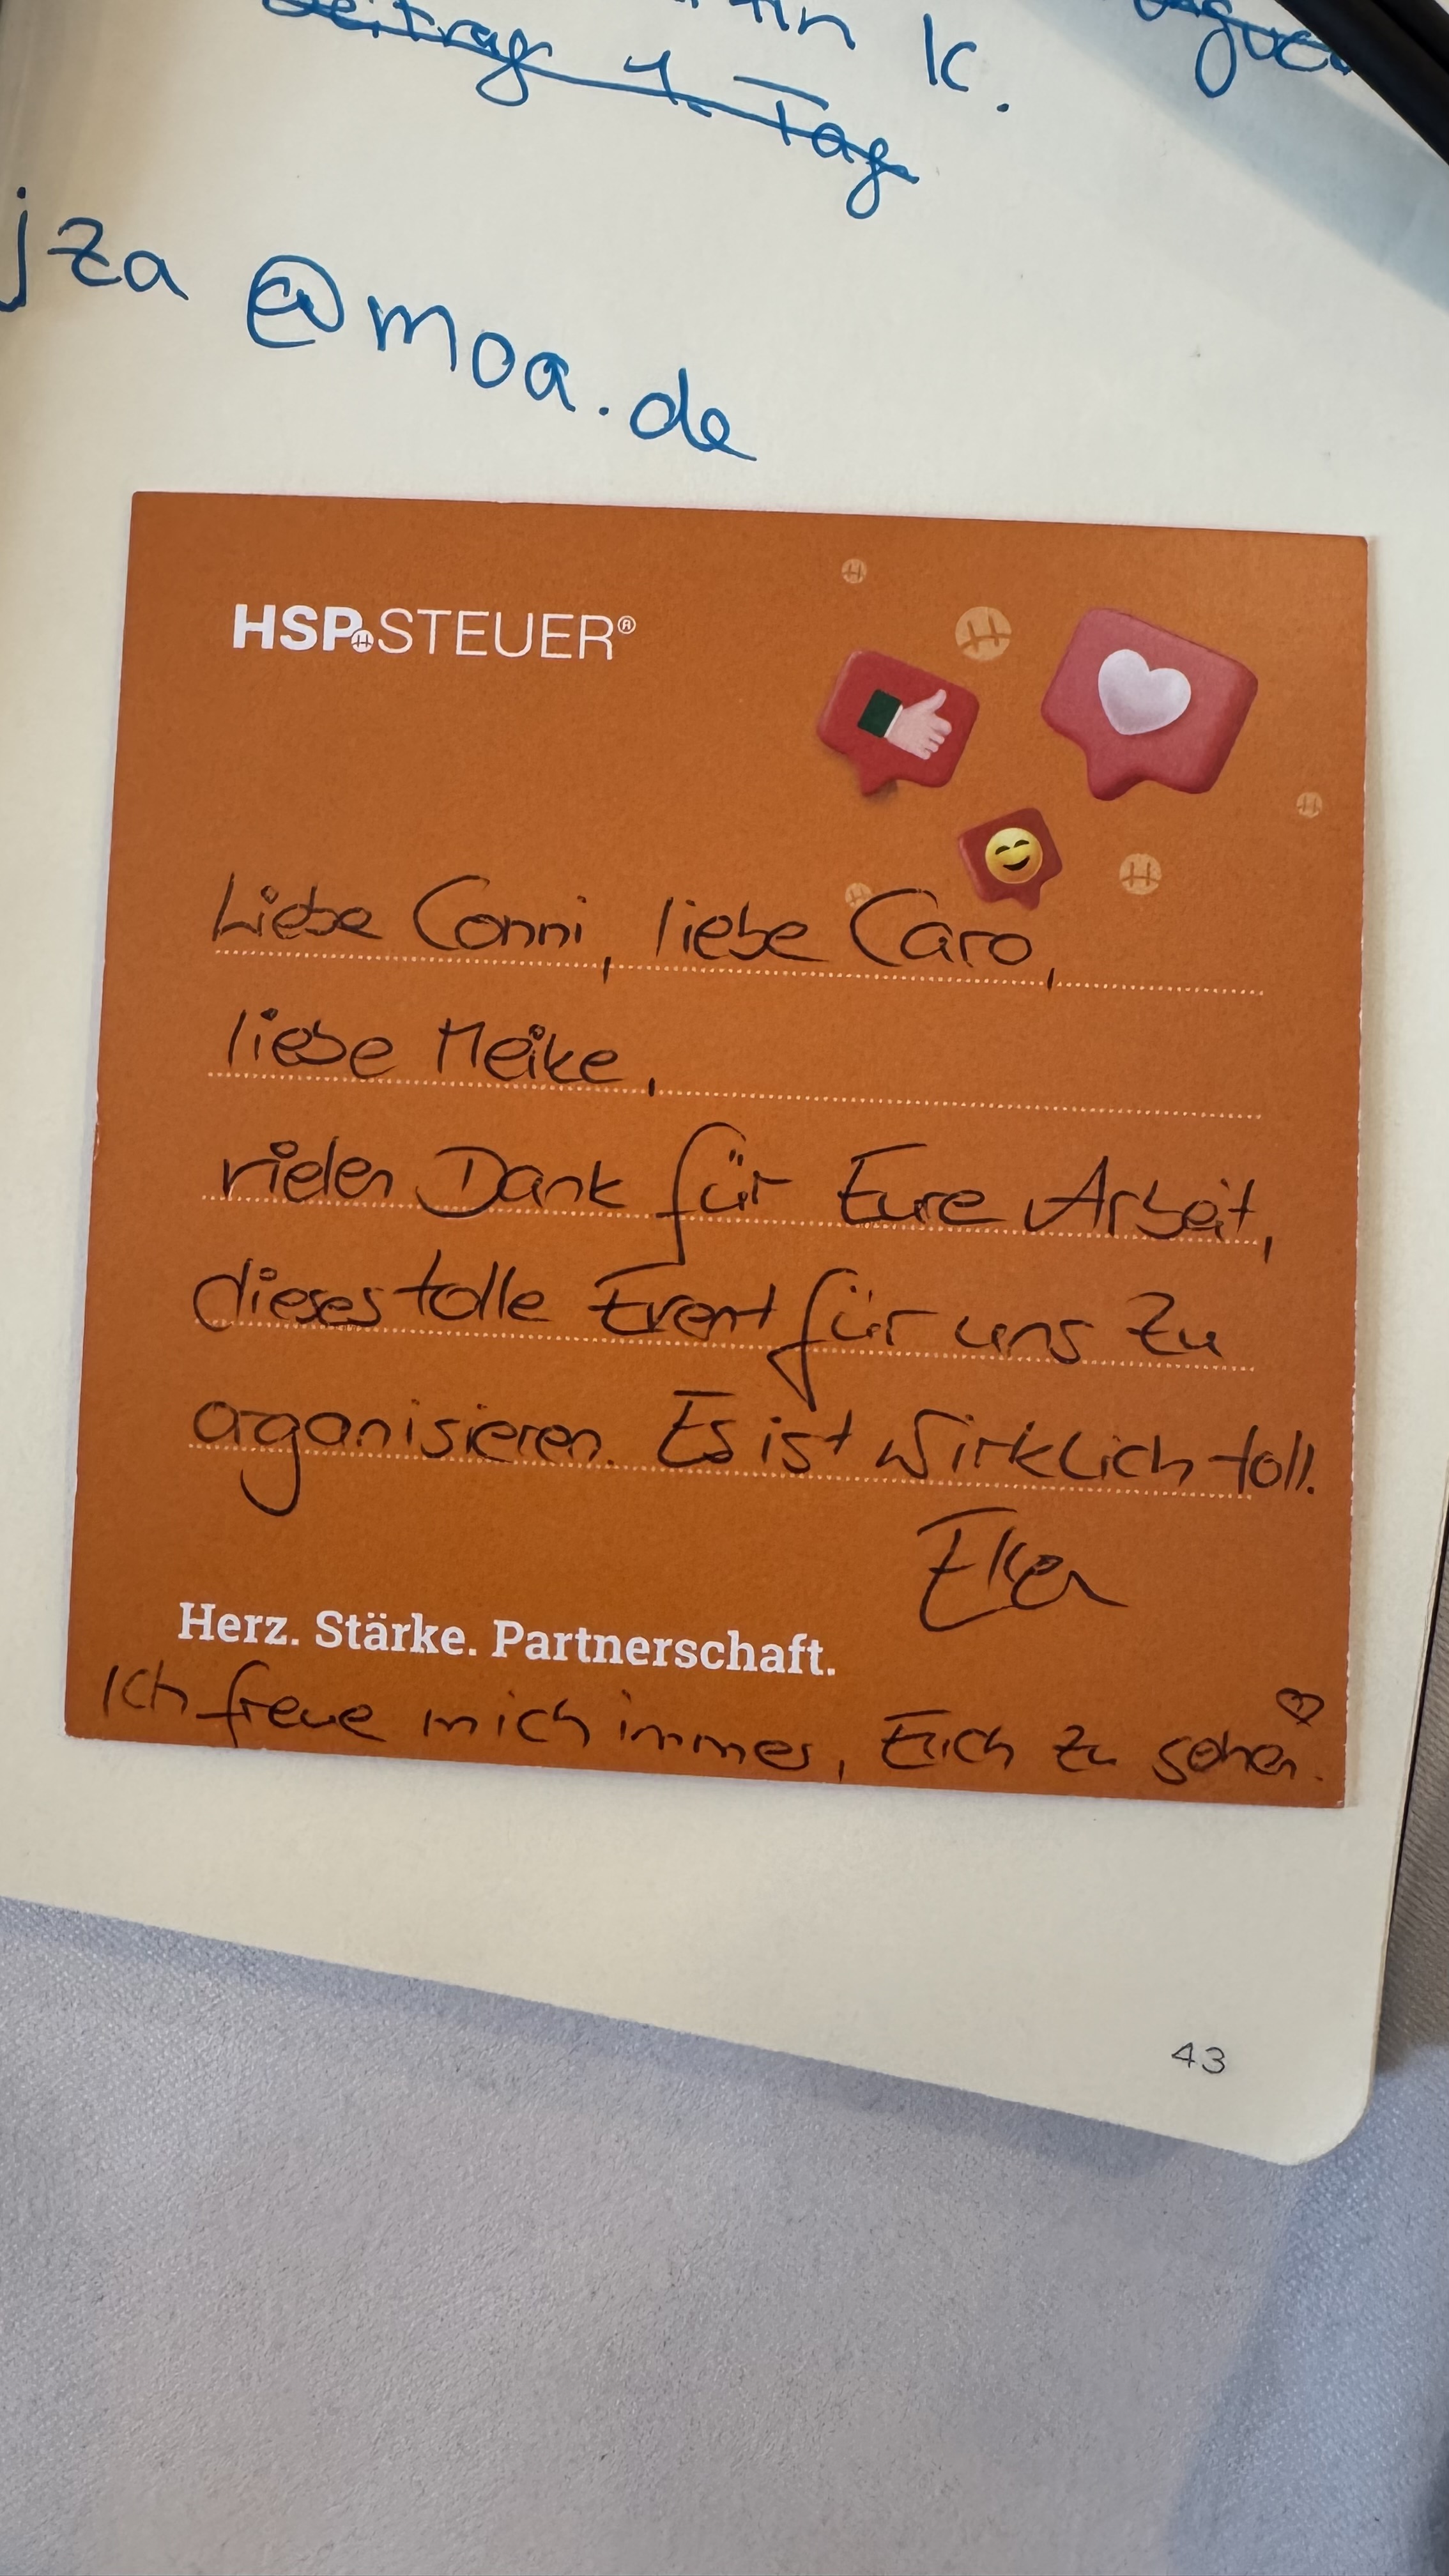 K.
1. Tag
jza @moa.de
HSP STEUER®
Liebe Conni, liebe Caro,
liebe Meike,
vielen Dank für Eure Arbeit,
dieses tolle Event für uns zu
organisieren. Es ist wirklich toll.
Herz. Stärke. Partnerschaft.
Ich freue mich immer, Euch zu sehen.
43